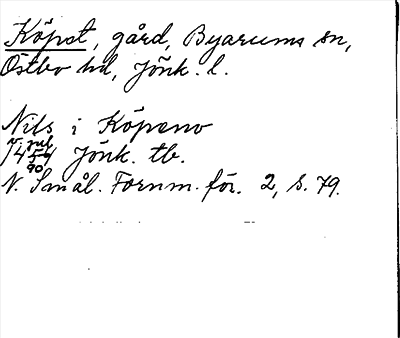 Köpst, gård, Byarums sn,
Östbo hd, Jönk. l.
Nils i Köpsno
7 jul
14 90 Jönk. tb.
N. Smål. Fornm. för. 2, s. 79.